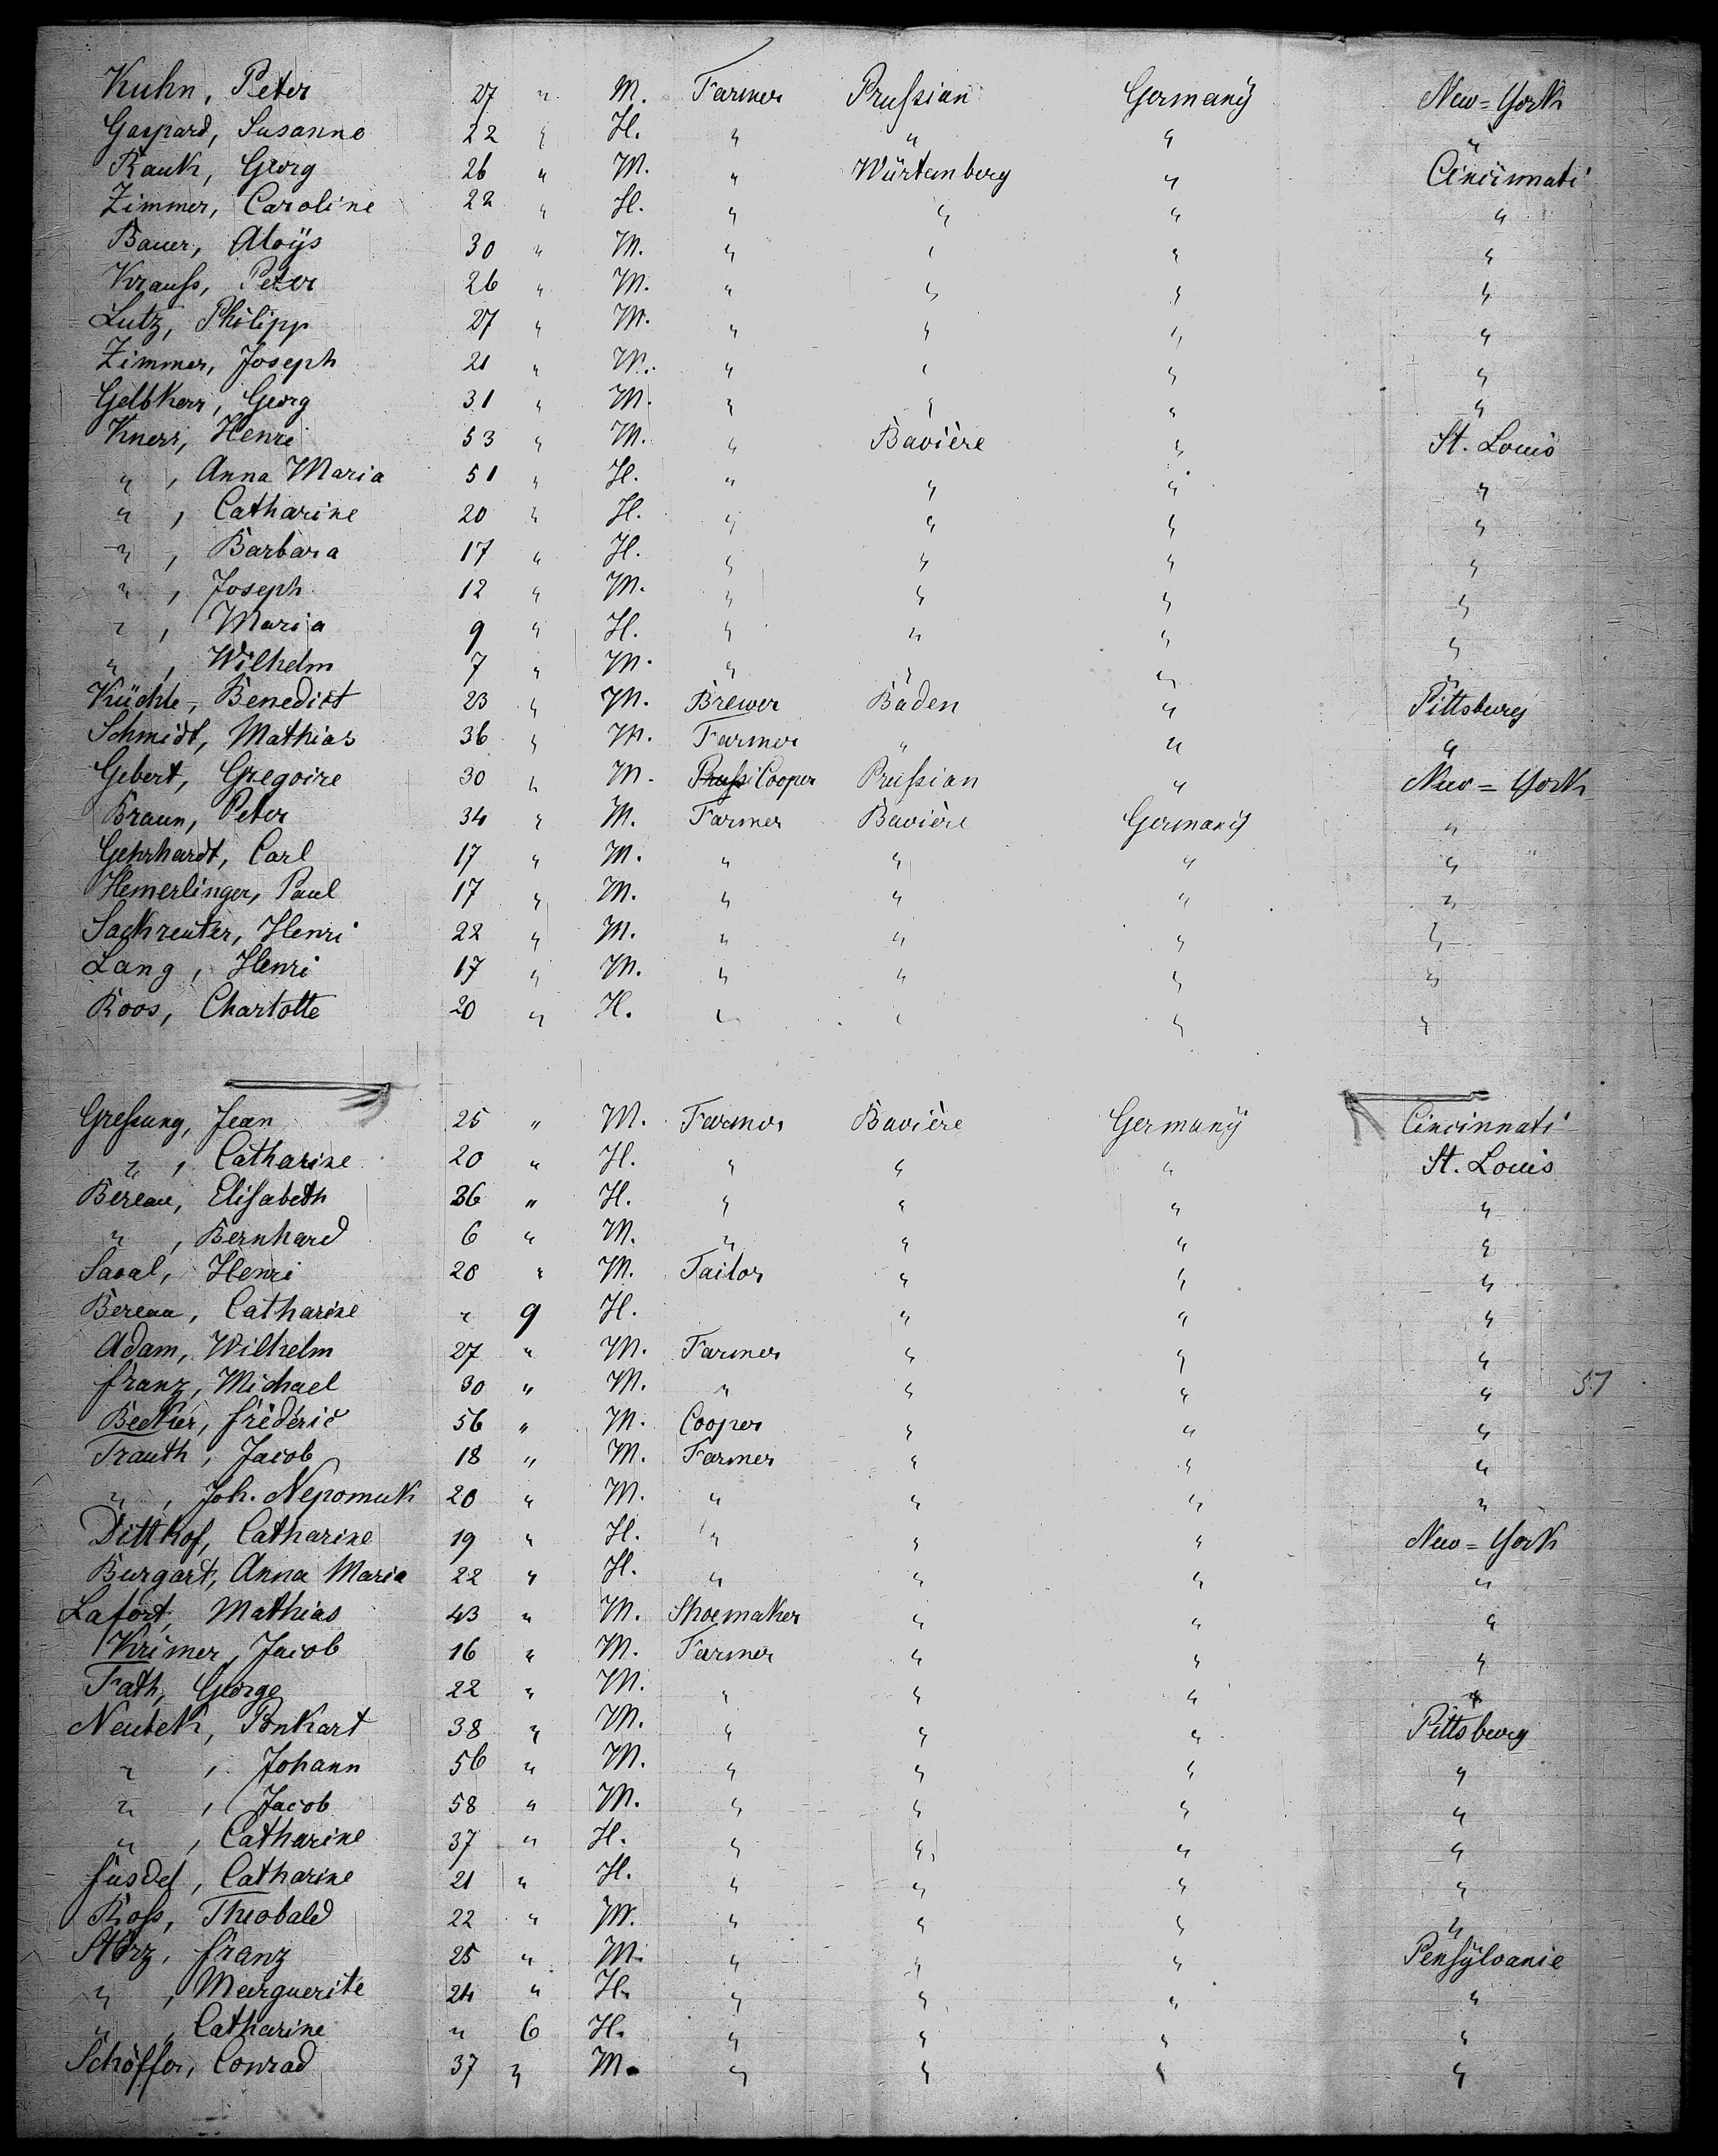 Kuhn, Peter 27 " M. Farmer Prussian Germanÿ New=York
Gaspard, Susanne 22 " H. " " " "
Rauk, Georg 26 " M. " Würtemberg " Cincinnati
Zimmer, Caroline 22 " H. " " " "
Bauer, Aloÿs 30 " M. " " " "
Krauss, Peter 26 " M. " " " "
Lutz, Philipp 27 " M. " " " "
Zimmer, Joseph 21 " M. " " " "
Gelbkerr, Georg 31 " M. " " " "
Knerr, Henri 53 " M. " Bavière " St. Louis
" , Anna Maria 51 " H. " " " "
" , Catharine 20 " H. " " " "
" , Barbara 17 " H. " " " "
" , Joseph 12 " M. " " " "
" , Maria 9 " H. " " " "
" , Wilhelm 7 " M. " " " "
Küchle, Benedict 23 " M. Brewer Baden " Pittsburg
Schmidt, Mathias 36 " M. Farmer " " "
Gebert, Gregoire 30 " M. Pruss Cooper Prussian " New=York
Braun, Peter 34 " M. Farmer Bavière Germanÿ "
Gehrhardt, Carl 17 " M. " " " "
Hemerlinger, Paul 17 " M. " " " "
Sackreuter, Henri 22 " M. " " " "
Lang, Henri 17 " M. " " " "
Roos, Charlotte 20 " H. " " " "
Gressung, Jean 25 " M. Farmer Bavière Germanÿ Cincinnati
" , Catharine 20 " H. " " " St. Louis
Bereau, Elisabeth 36 " H. " " " "
" , Bernhard 6 " M. " " " "
Saval, Henri 20 " M. Tailor " " "
Bereau, Catharine " 9 H. " " "
Adam, Wilhelm 27 " M. Farmer " " "
Franz, Michael 30 " M. " " " " 57
Becker, Fréderic 56 " M. Cooper " " "
Trauth, Jacob 18 " M. Farmer " " "
" , Joh. Nepomuk 20 " M. " " " "
Dittkof, Catharine 19 " H. " " " New=York
Burgart, Anna Maria 22 " H. " " " "
Lafort, Mathias 43 " M. Shoemaker " " "
Krimer, Jacob 16 " M. Farmer " " "
Fath, George 22 " M. " " " "
Neubek, Ponkart 38 " M. " " " Pittsburg
" , Johann 56 " M. " " " "
" , Jacob 58 " M. " " " "
" , Catharine 37 " H. " " " "
Catharine 21 " H. " " " "
Ross, Theobald 22 " M. " " " "
Störz, Franz 25 " M. " " " Pensÿlvanie
" , Marguerite 24 " H. " " " "
" , Catharine " 6 H. " " " "
Schöffer, Conrad 37 " M. " " " "